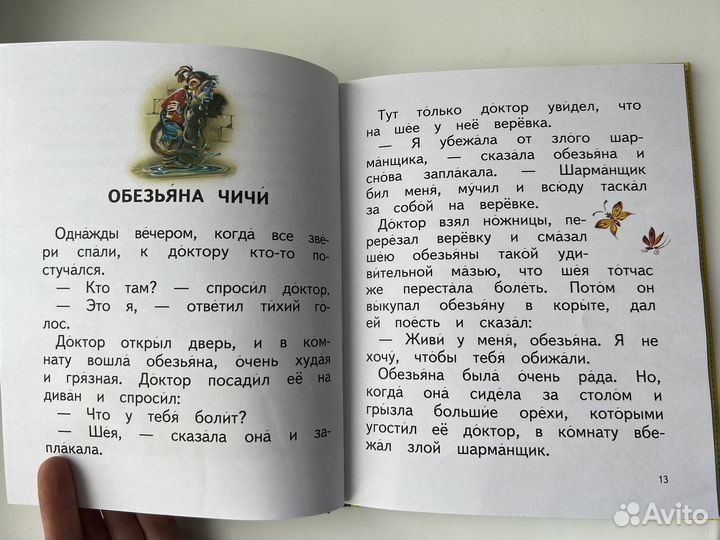 ОБЕЗЬЯ́НА ЧИЧИ́
Одна́жды ве́чером, когда́ все зве́-
ри спа́ли, к до́ктору кто́-то по-
стуча́лся.
— Кто там? — спроси́л до́ктор.
— Э́то я, — отве́тил ти́хий го́-
лос.
До́ктор откры́л дверь, и в ко́м-
нату вошла́ обезья́на, о́чень худа́я
и гря́зная. До́ктор посади́л её на
дива́н и спроси́л:
— Что у тебя́ боли́т?
— Ше́я, — сказа́ла она́ и за-
пла́кала.
Тут то́лько до́ктор уви́дел, что
на ше́е у неё верёвка.
— Я убежа́ла от зло́го шар-
ма́нщика, — сказа́ла обезья́на и
сно́ва запла́кала. — Шарма́нщик
бил меня́, му́чил и всю́ду таска́л
за собо́й на верёвке.
До́ктор взял но́жницы, пе-
ререза́л верёвку и сма́зал
ше́ю обезья́ны тако́й уди-
ви́тельной ма́зью, что ше́я то́тчас
же переста́ла боле́ть. Пото́м он
вы́купал обезья́ну в коры́те, дал
ей пое́сть и сказа́л:
— Живи́ у меня́, обезья́на. Я не
хочу́, что́бы тебя́ обижа́ли.
Обезья́на была́ о́чень ра́да. Но,
когда́ она́ сиде́ла за столо́м и
гры́зла больши́е оре́хи, кото́рыми
угости́л её до́ктор, в ко́мнату вбе-
жа́л злой шарма́нщик.
13
Avito